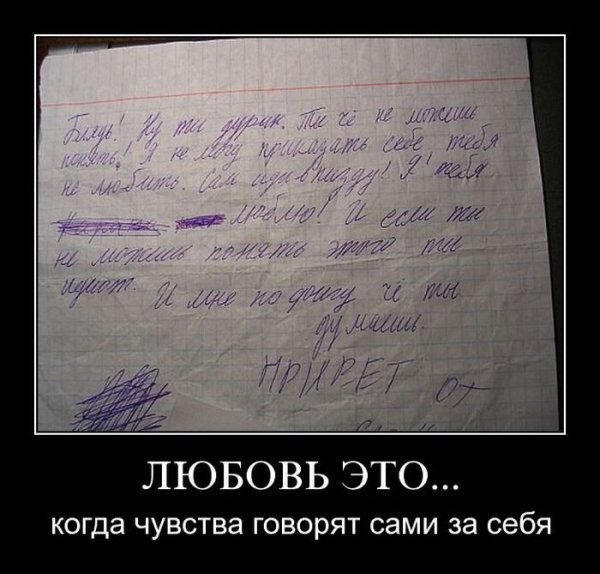 Блядь! Ну ты дурик. Ты чё не можешь
понять! Я не могу приказать себе, тебя
не любить. Сам иди в пизду! Я тебя
люблю! И если ты
не можешь понять этого ты
идиот. И мне по фигу чё ты
думаешь.
ПРИВЕТ от
ЛЮБОВЬ ЭТО...
когда чувства говорят сами за себя